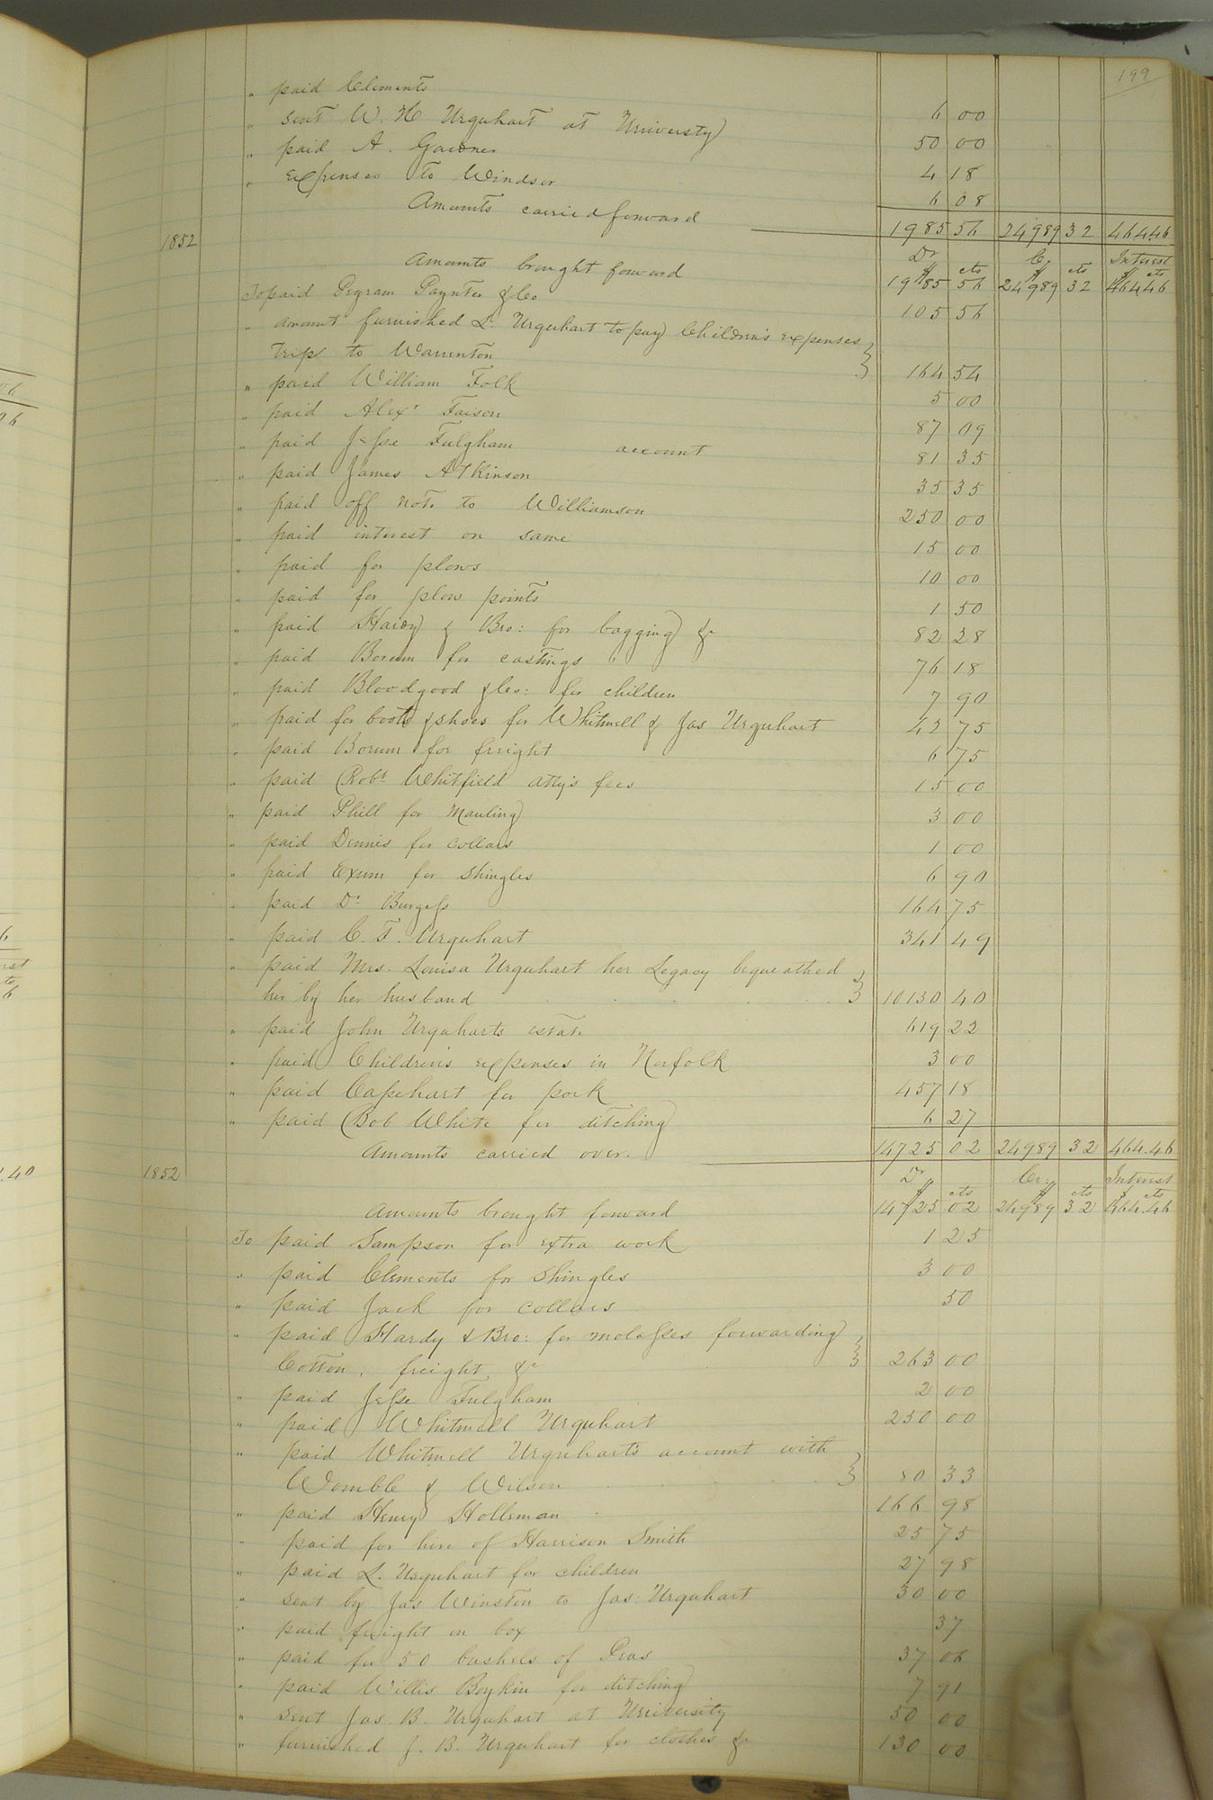 199
" paid Clements 6 00
" sent W. H Urquhart at University 50 00
" paid A. Gardner 4 18
" expenses to Windsor 6 08
Amounts carried forward 1985 56 24989 32 464.46
1852 Dr Cr Interest
$ cts $ cts $ cts
Amounts brought forward 1985 56 24989 32 464.46
To paid Pegram Paynter & Co 105 56
" amount furnished L. Urquhart to pay Children's expenses
trip to Warrenton 164 54
" paid William Folk 5 00
" paid Alexr Faison 87 09
" paid Jesse Fulgham account 81 35
" paid James Atkinson 35 35
" paid off note to Williamson 250 00
" paid interest on same 15 00
" paid for plows 10 00
" paid for plow points 1 50
" paid Hardy & Bro: for bagging &c 82 28
" paid Borum for castings 76 18
" paid Bloodgood & Co: for children 7 90
" paid for boots & shoes for Whitmell & Jas Urquhart 42 75
" paid Borum for freight 6 75
" paid Robt Whitfield atty's fees 15 00
" paid Phill for Mauling 3 00
" paid Dennis for collars 1 00
" paid Exum for shingles 6 90
" paid Dr Burgess 164 75
" paid C. F. Urquhart 341 49
" paid Mrs. Louisa Urquhart her Legacy bequeathed
her by her husband 10130 40
" paid John Urquharts estate 619 22
" paid Children's expenses in Norfolk 3 00
" paid Capehart for pork 457 18
" paid Bob White for ditching 6 27
Amounts carried over 14725 02 24989 32 464.46
1852 Dr Cr Interest
$ cts $ cts $ cts
Amounts brought forward 14725 02 24989 32 464.46
To paid Sampson for extra work 1 25
" paid Clements for shingles 3 00
" paid Jack for collars 50
" paid Hardy & Bro: for molasses forwarding
Cotton, freight &c 263 00
" paid Jesse Fulgham 2 00
" paid Whitmell Urquhart 250 00
" paid Whitmell Urquhart's account with
Womble & Wilson 80 33
" paid Henry Holleman 166 98
" paid for hire of Harrison Smith 25 75
" paid L. Urquhart for children 27 98
" sent by Jas Winston to Jas: Urquhart 30 00
" paid freight on box 37
" paid for 50 bushels of Peas 37 06
" paid Willis Boykin for ditching 7 91
" sent Jas B. Urquhart at University 50 00
" furnished J. B. Urquhart for clothes &c 130 00